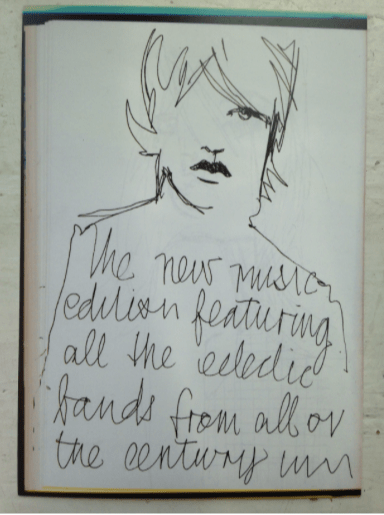 The new music
edition featuring
all the ecledic
bands from all ov
the century